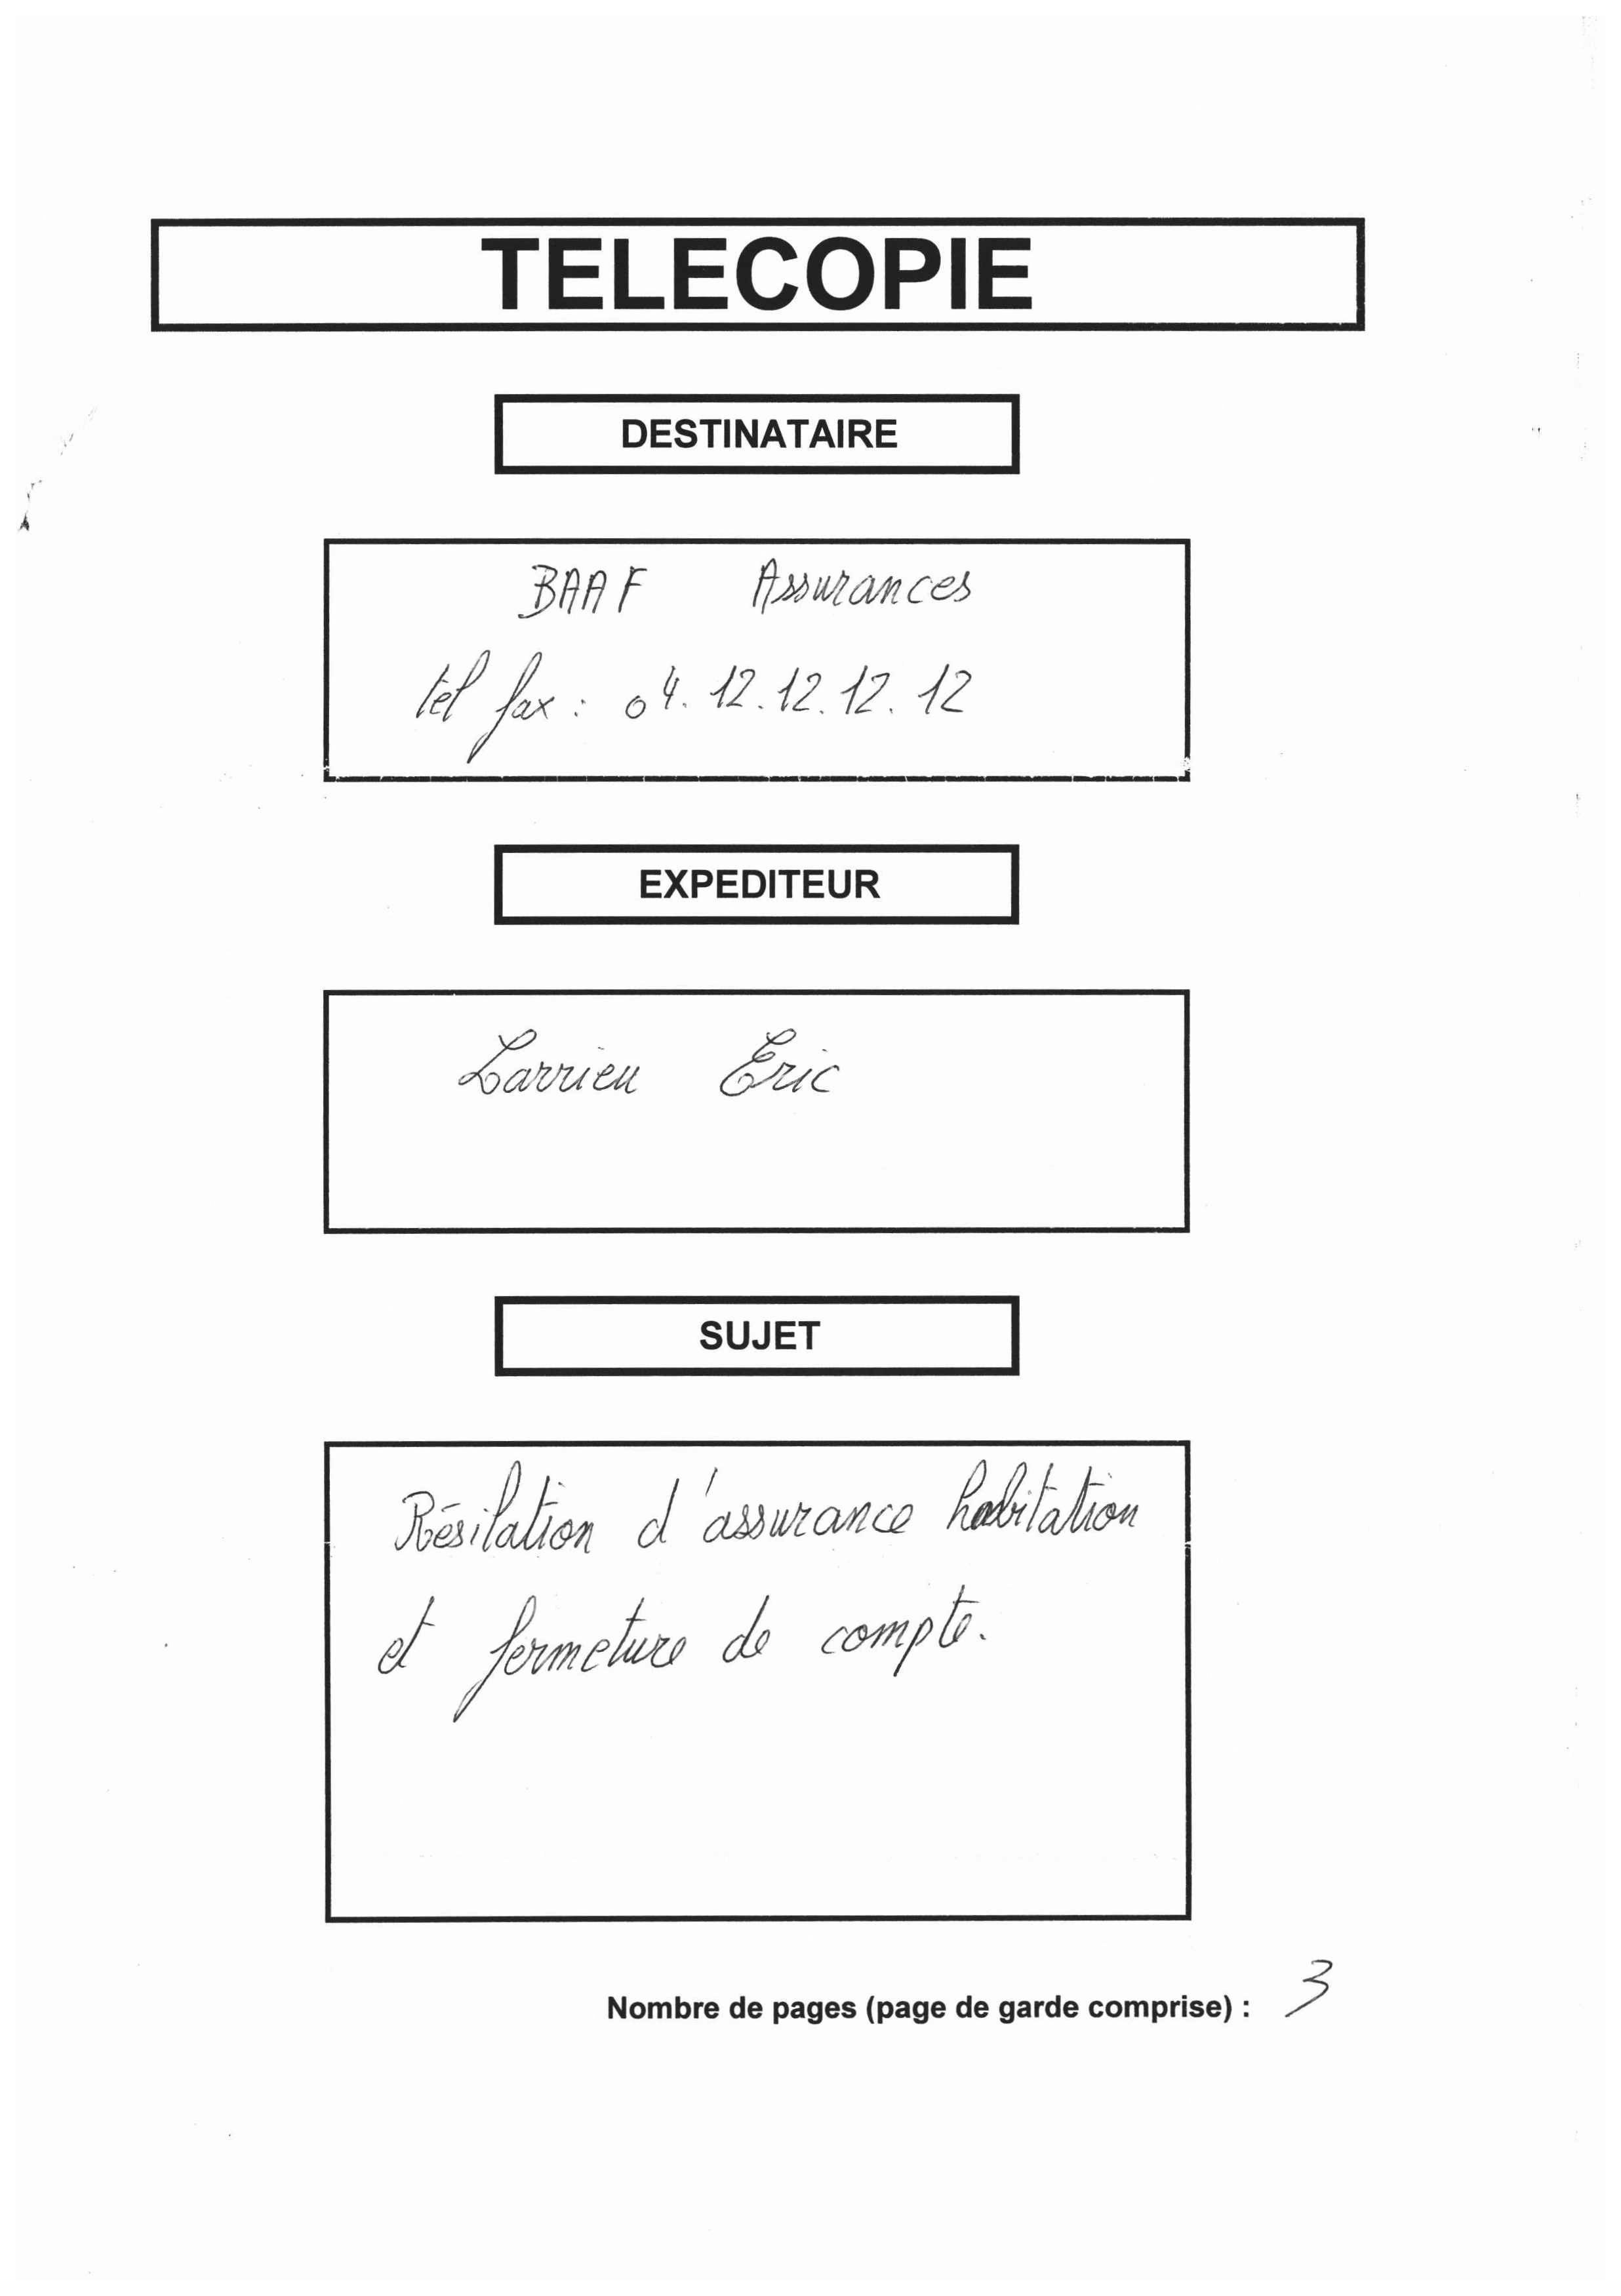 TELECOPIE
DESTINATAIRE
BAAF Assurances
tel fax : 04.12.12.12.12
EXPEDITEUR
Larrieu Eric
SUJET
Résilation d'assurance habitation
et fermeture de compte.
Nombre de pages (page de garde comprise) : 3